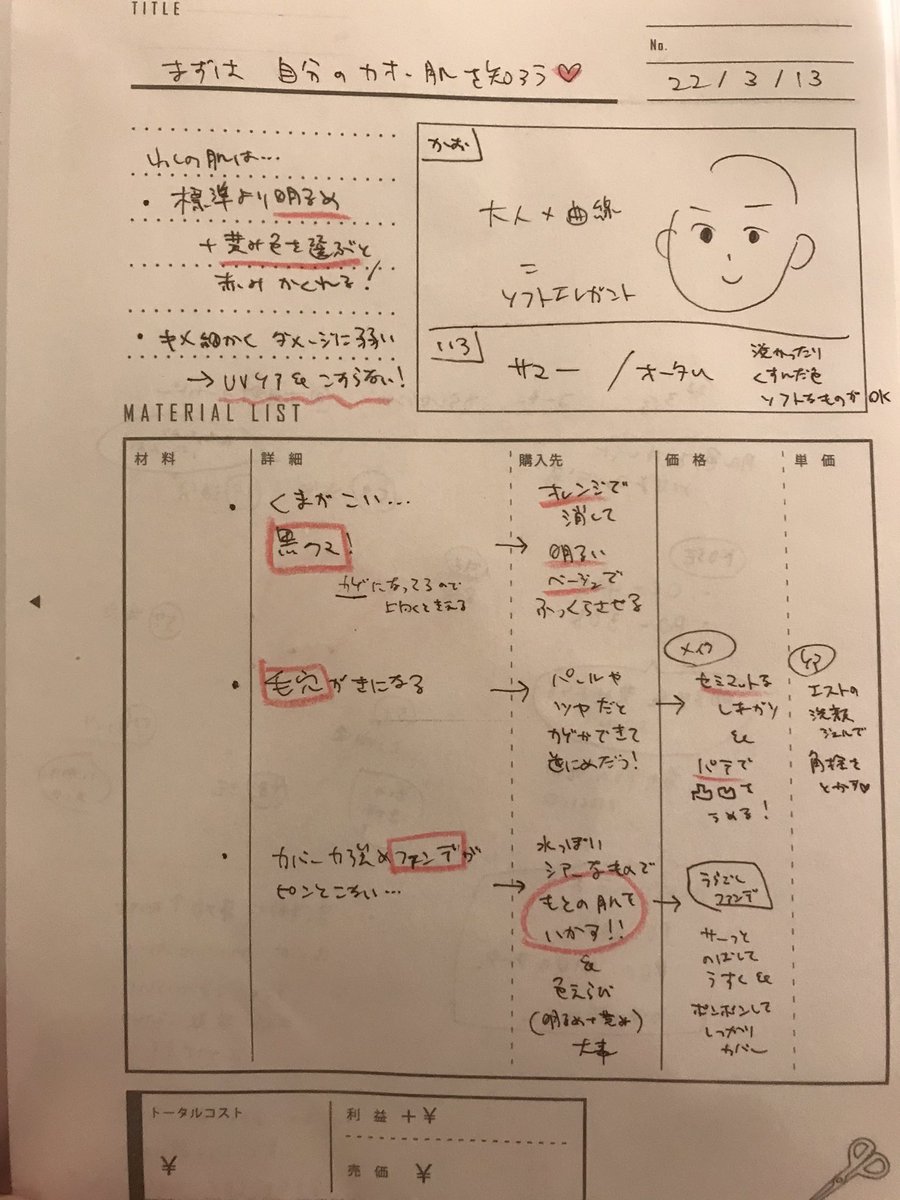 TITLE
まずは 自分のカオ・肌を知ろう♡
No.
22/3/13
わしの肌は…
・標準より明るめ
+黄み色を選ぶと
赤みかくれる!
・キメ細かく ダメージに弱い
→UVケア & こすらない!
かお
大人×曲線
=
ソフトエレガント
いろ
サマー/オータム
渋かったり
くすんだ色
ソフトなものが OK
MATERIAL LIST
材料 詳細 購入先 価格 単価
・くまがこい…
黒クマ!
カゲになってるので
上向くと消える
→
オレンジで
消して
明るい
ベージュで
ふっくらさせる
・毛穴がきになる
→
パールや
ツヤだと
カゲができて
逆にめだつ!
→
メイク
セミマットな
しあがり
&
パテで
凸凹を
うめる!
ケア
エストの
洗顔
ジェルで
角栓を
とかす♡
・カバー力強めファンデが
ピンとこない…
→
水っぽい
シアーなもので
もとの肌を
いかす!!
&
色えらび
(明るめ+黄み)
大事
→
うらごし
ファンデ
サーっと
のばして
うすく &
ポンポンして
しっかり
カバー
トータルコスト
¥
利益 +¥
売価 ¥